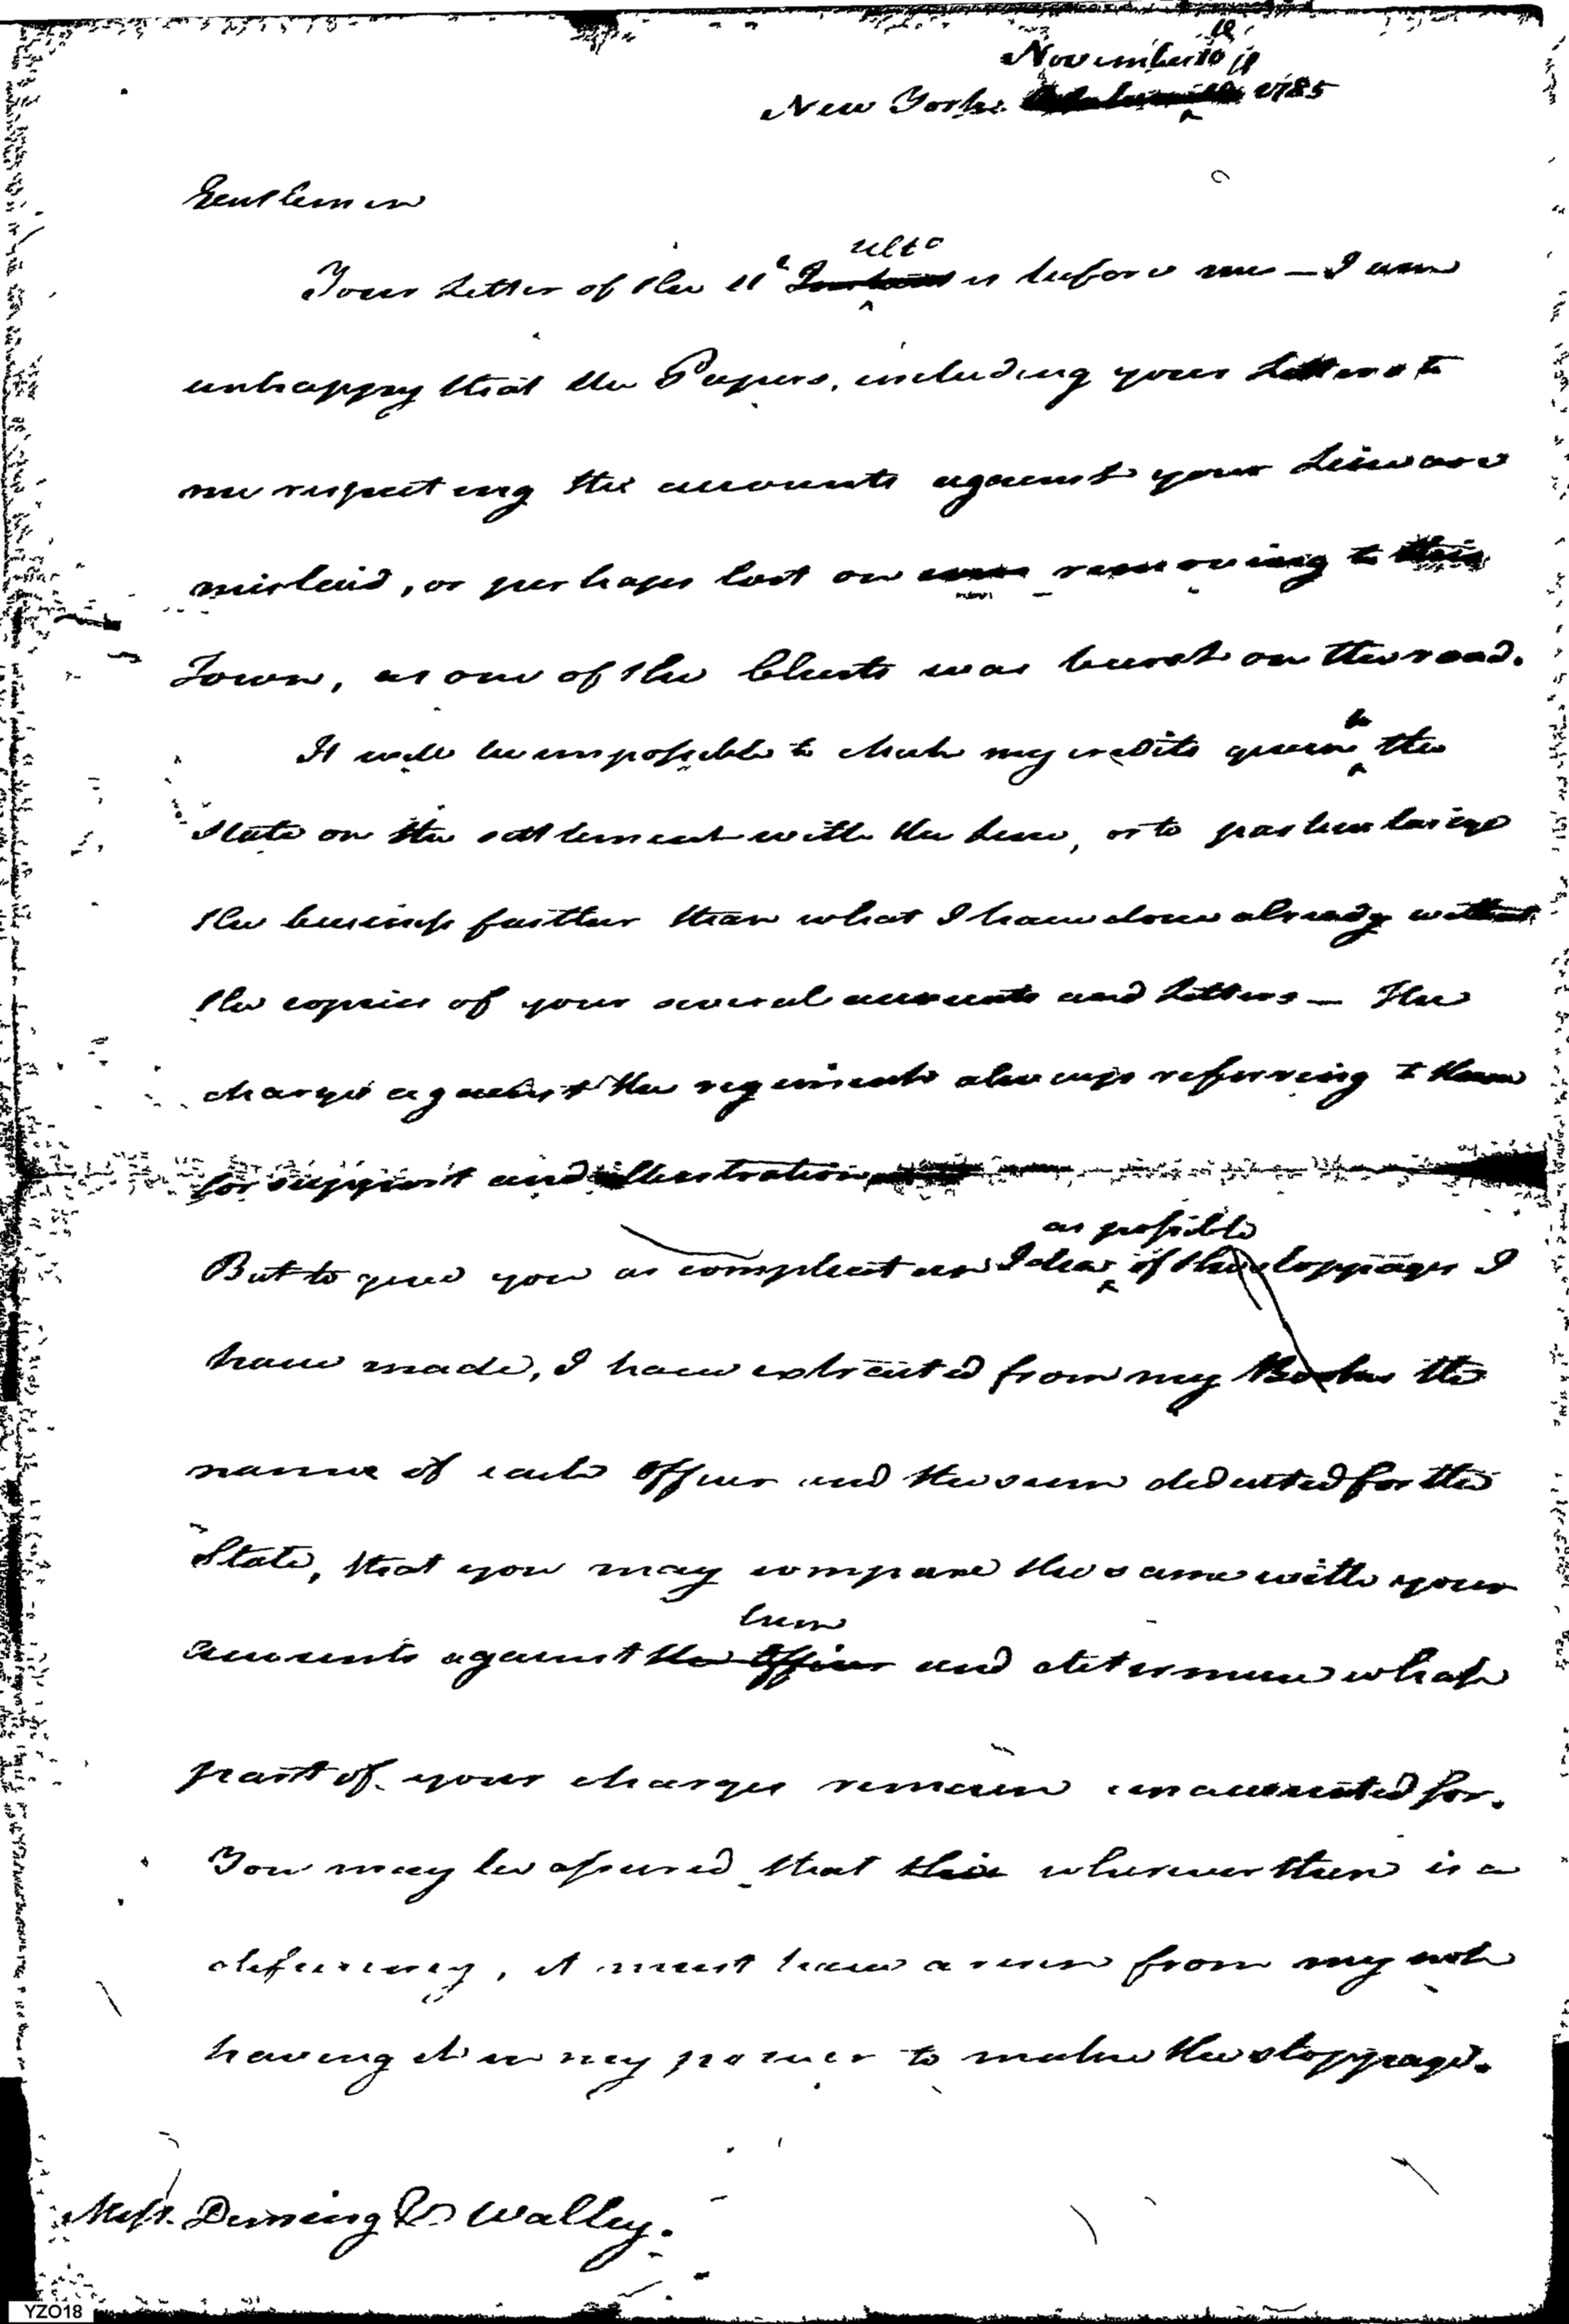 November 10th
New York 1785
Gentlemen
ulto
Your Letter of the 11t Instant is before me — I am
unhappy that the Papers, including your Letters to
me respecting the accounts against your Line are
mislaid, or perhaps lost on removing to this
Town, as one of the Chests was burst on the road.
It will be impossible to check my credits given to the
State on the settlement with the Line, or to particularize
the business further than what I have done already without
the copies of your several accounts and Letters — The
charges against the regiments always referring to them
for support and illustration
as possible
But to give you as compleat an Idea of the stoppages I
have made, I have extracted from my Books the
name of each Officer and the sum deducted for the
State, that you may compare the same with your
him
accounts against the Officer and determine what
part of your charges remain unaccounted for.
You may be assured that this wherever there is a
deficiency, it must have arisen from my not
having it in my power to make the stoppage.
Messrs. Deming & Walley.
YZO18